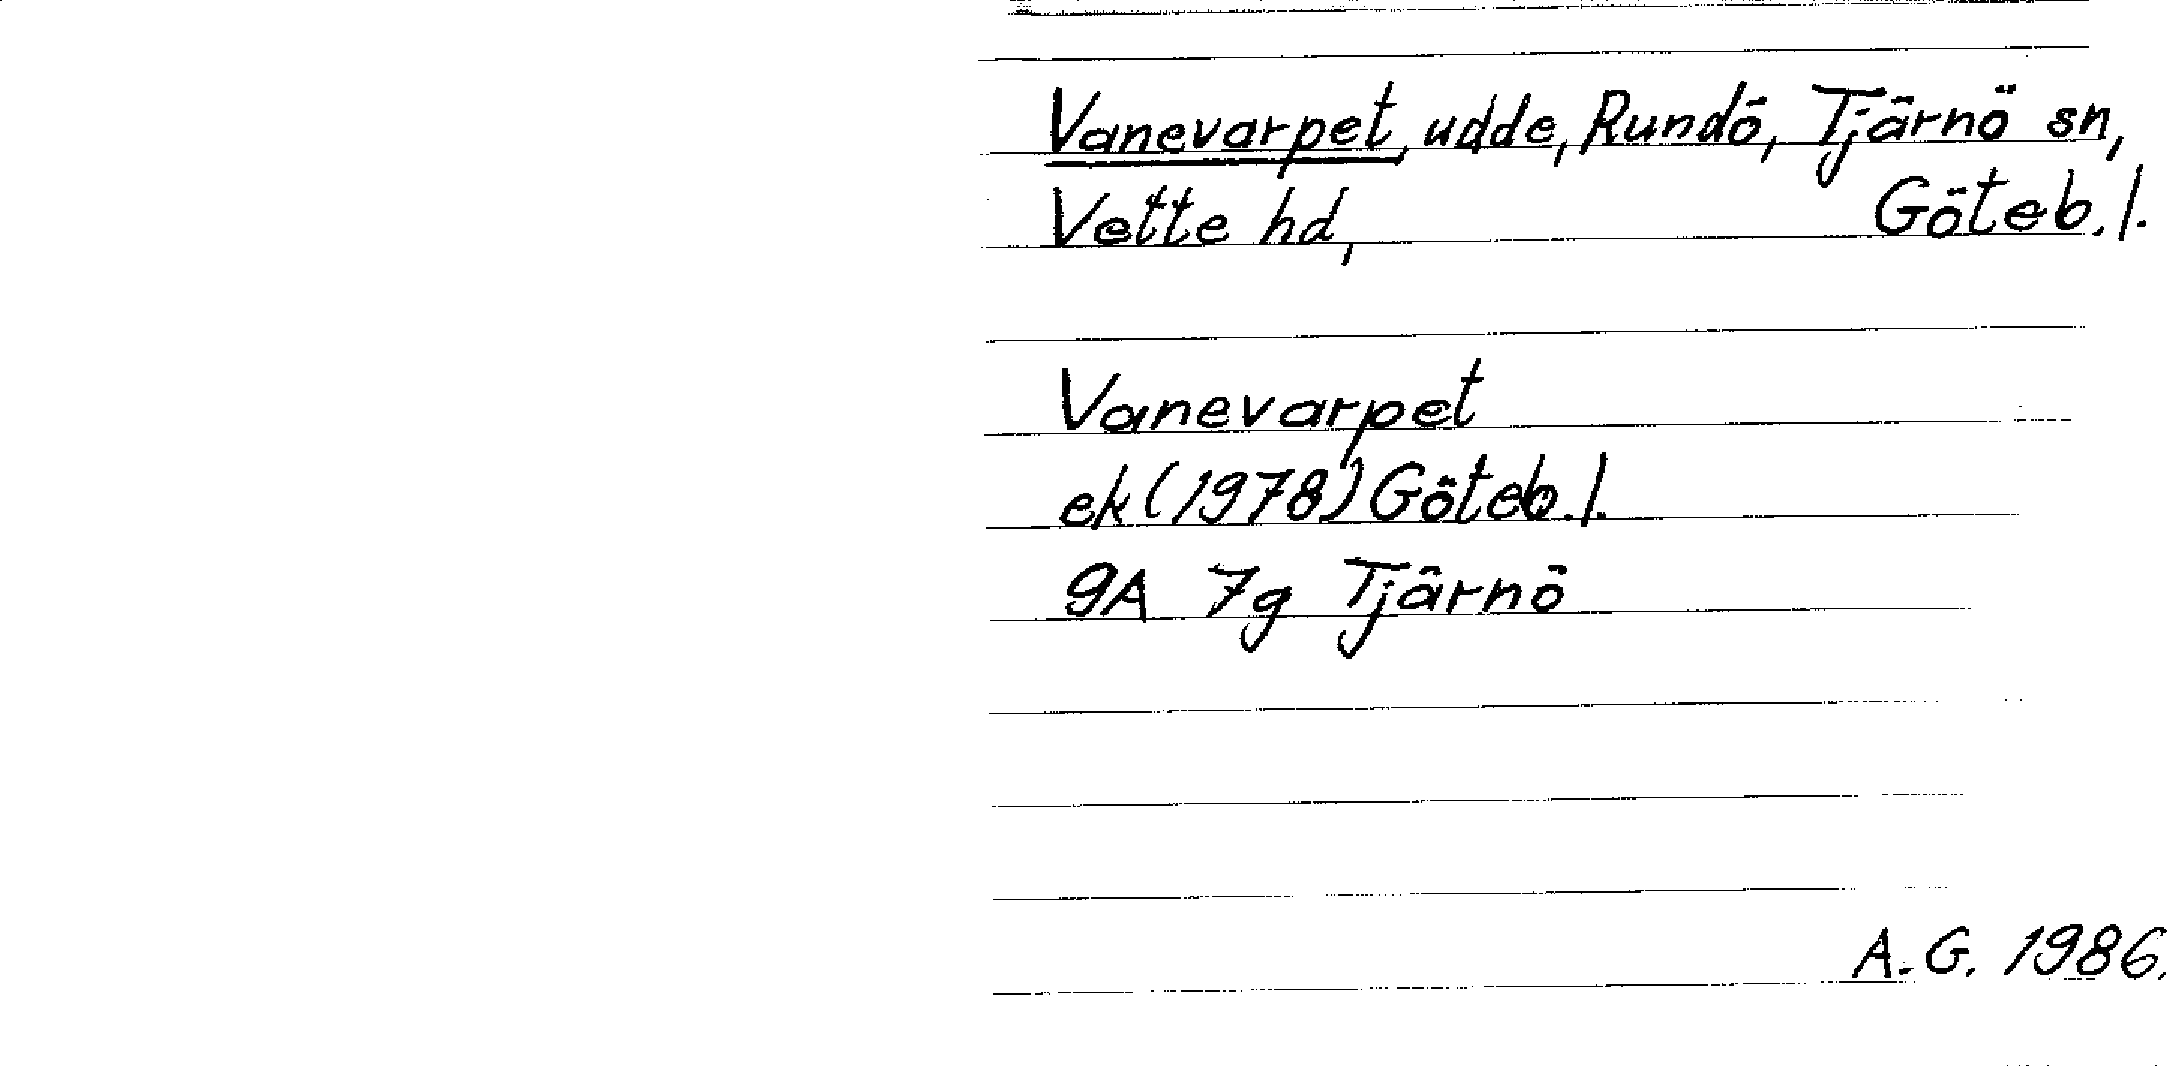 Vanevarpet, udde, Rundö, Tjärnö sn,
Vette hd, Göteb. l.
Vanevarpet
ek (1978) Göteb. l.
9A 7g Tjärnö
A. G. 1986.